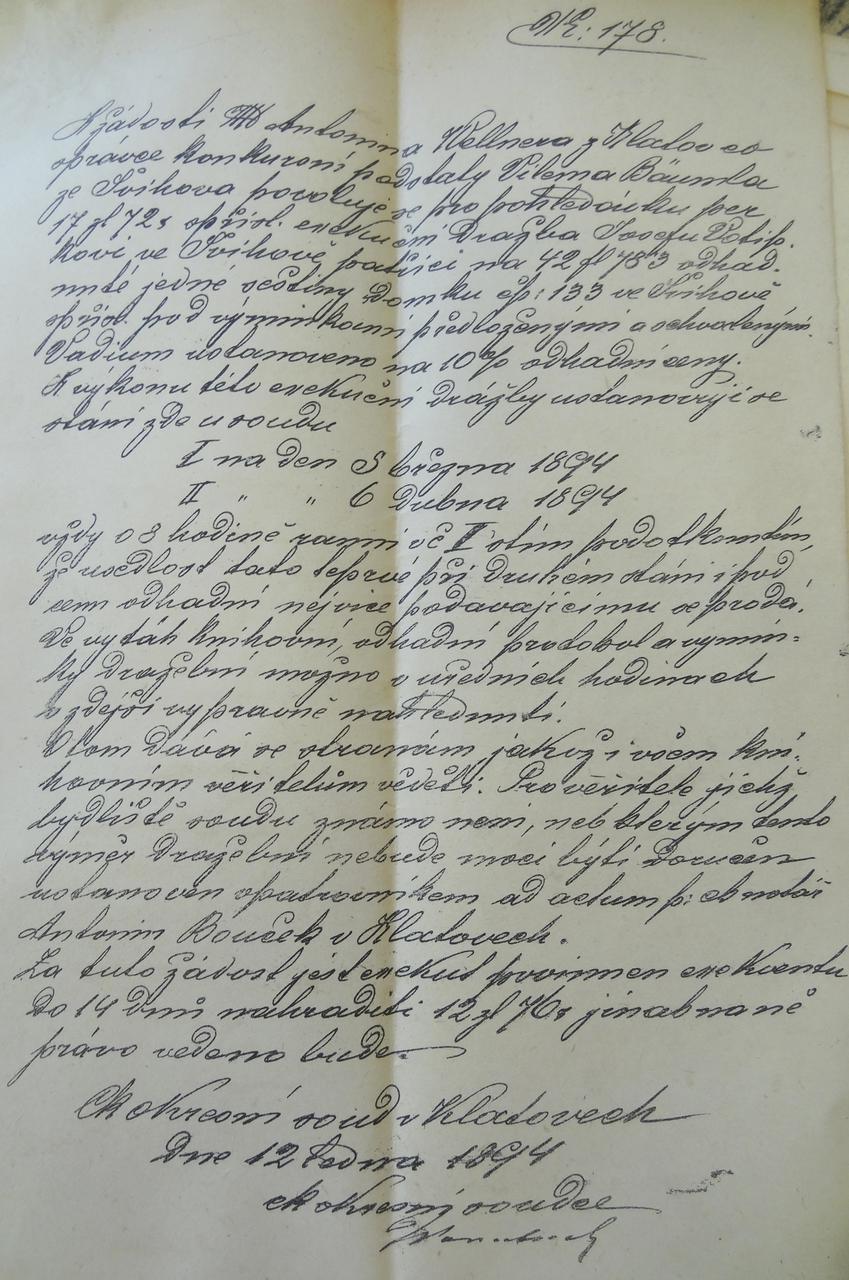 NE: 178.
K žádosti Antonina Wellnera z Klatov co
správce konkursní podstaty Viléma Bäumla
ze Švihova povoluje se pro pohledávku per
17 zl 72 s přísl. exekuční dražba Josefu Potip.
kovi ve Švihově patřící na 42 fl 78 3 odhad.
nuté jedné šestiny domku čp: 133 ve Švihově
s přísl. pod výminkami předloženými a schvalenými.
Vadium ustanoveno na 10% odhadní ceny.
K výkonu této exekuční dražby ustanovují se
stání zde u soudu
I na den 5 března 1894
II " " 6 dubna 1894
vždy o 8 hodině ranní v č II s tím podotknutím,
že usedlost tato teprvé při druhém stání i pod
cenu odhadní nejvíce podavajícímu se prodá.
Ve vytáh knihovní, odhadní protokol a výmin-
ky dražební možno v uředních hodinach
v zdejší vypravně nahlednuti.
O tom dává se stranám, jakož i všem kni-
hovním věřitelům věděti. Pro věřitele jichž
bydliště soudu známo neni, neb kterým tento
výměr dražební nebude moci býti doručen
ustanoven opatrovníkem ad actum p: ck notář
Antonin Bouček v Klatovech.
Za tuto žádost jest exekut povinnen exekventu
do 14 dnů nahraditi 12 zl 70 s jinak na ně
právo vedeno bude.
Ck okresní soud v Klatovech
Dne 12 ledna 1894
ck okresní soudce